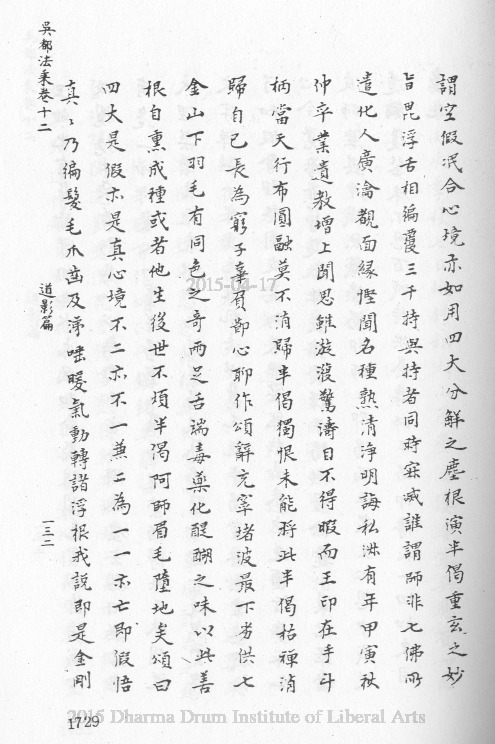 謂空假泯合心境亦如用四大分鮮之塵根演半偈重玄之妙
旨毘浮舌相徧覆三千持與持者同時寂滅誰謂師非七佛所
遣化人廣瀹覩面緣慳聞名種熟清淨明誨私淋有年甲寅秋
仲卒業遺教增上聞思雖游溟驚濤目不得暇而王印在手斗
柄當天行布圓融莫不消歸半偈獨恨未能將此半偈枯禪消
歸自己長為窮子辜負鄙心聊作頌辭充窣堵波最下劣供七
金山下羽毛有同色之奇兩足舌端毒藥化醍醐之味以此善
根自熏成種或者他生後世不煩半偈阿師眉毛墮地矣頌曰
四大是假亦是真心境不二亦不一兼二為一一亦亡即假悟
真真乃徧髮毛爪齒及涕唾暖氣動轉諸浮根我說即是金剛
吳都法乘卷十二
道影篇
一三二
1729
2015-04-17
2015 Dharma Drum Institute of Liberal Arts